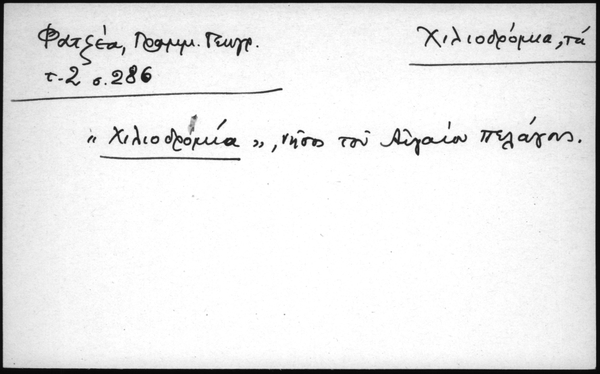 Φατζέα, Γραμμ. Γεωγρ.
τ. 2 σ. 286
Χιλιοδρόμια, τά
"Χιλιοδρόμια", νῆσος τοῦ Αἰγαίου πελάγους.